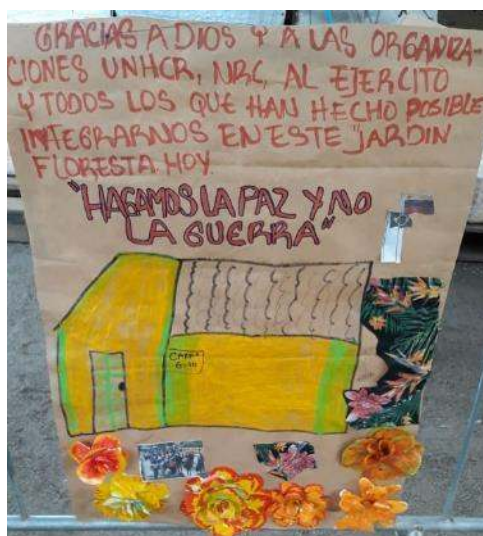 GRACIAS A DIOS Y A LAS ORGANIZA-
CIONES UNHCR, NRC, AL EJERCITO
Y TODOS LOS QUE HAN HECHO POSIBLE
INTEGRARNOS EN ESTE "JARDIN
FLORESTA HOY.
"HAGAMOS LA PAZ Y NO
LA GUERRA"